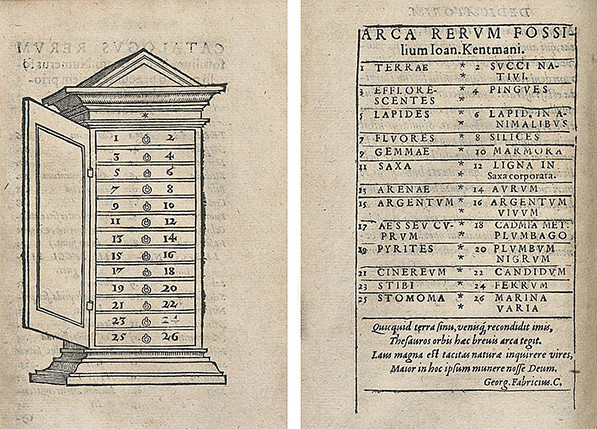 *
1 2
3 4
5 6
7 8
9 10
11 12
13 14
15 16
17 18
19 20
21 22
23 24
25 26
ARCA RERVM FOSSI-
lium Ioan. Kentmani.
1 TERRAE * 2 SVCCI NA-
* TIVI.
3 EFFLORE- * 4 PINGVES
SCENTES *
5 LAPIDES * 6 LAPID. IN A-
* NIMALIBVS
7 FLVORES * 8 SILICES
9 GEMMAE * 10 MARMORA
11 SAXA * 12 LIGNA IN
* Saxa corporata.
13 ARENAE * 14 AVRVM
15 ARGENTVM * 16 ARGENTVM
* VIVVM
17 AES SEV CV- * 18 CADMIA MET.
PRVM * PLVMBAGO
19 PYRITES * 20 PLVMBVM
* NIGRVM
21 CINEREVM * 22 CANDIDVM
23 STIBI * 24 FERRVM
25 STOMOMA * 26 MARINA
* VARIA
Quicquid terra sinu, venisq́; recondidit imis,
Thesauros orbis hæc breuis arca tegit.
Laus magna est tacitas naturæ inquirere vires,
Maior in hoc ipsum munere nosse Deum.
Georg. Fabricius. C.